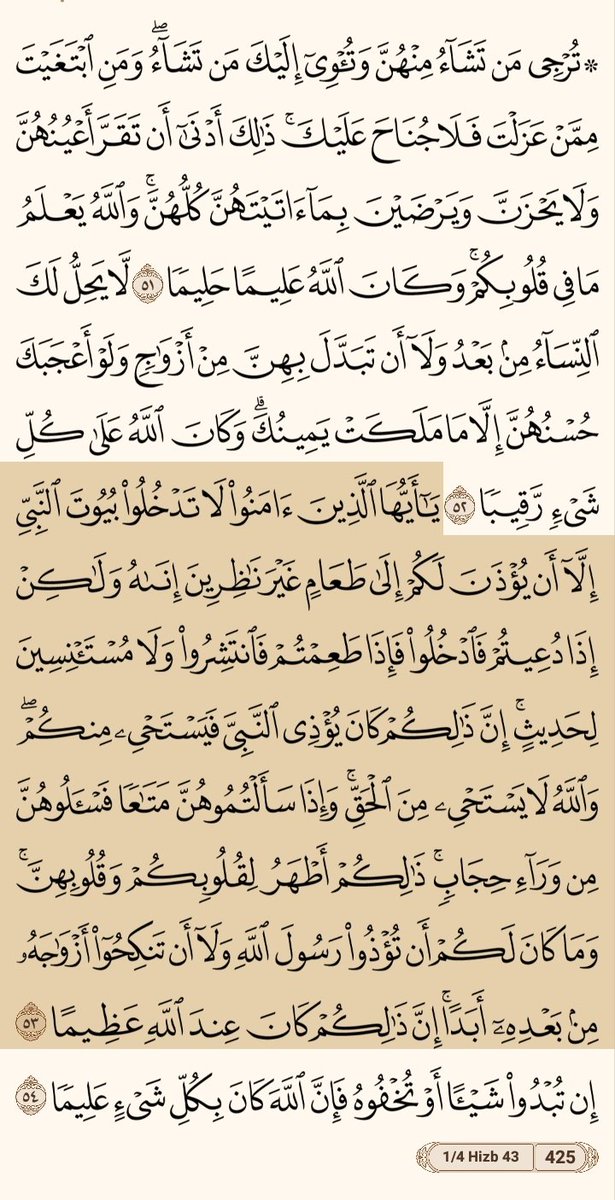 ۞ تُرْجِى مَن تَشَآءُ مِنْهُنَّ وَتُـْٔوِىٓ إِلَيْكَ مَن تَشَآءُ ۖ وَمَنِ ٱبْتَغَيْتَ
مِمَّنْ عَزَلْتَ فَلَا جُنَاحَ عَلَيْكَ ۚ ذَٰلِكَ أَدْنَىٰٓ أَن تَقَرَّ أَعْيُنُهُنَّ
وَلَا يَحْزَنَّ وَيَرْضَيْنَ بِمَآ ءَاتَيْتَهُنَّ كُلُّهُنَّ ۚ وَٱللَّهُ يَعْلَمُ
مَا فِى قُلُوبِكُمْ ۚ وَكَانَ ٱللَّهُ عَلِيمًا حَلِيمًا ٥١ لَّا يَحِلُّ لَكَ
ٱلنِّسَآءُ مِنۢ بَعْدُ وَلَآ أَن تَبَدَّلَ بِهِنَّ مِنْ أَزْوَٰجٍ وَلَوْ أَعْجَبَكَ
حُسْنُهُنَّ إِلَّا مَا مَلَكَتْ يَمِينُكَ ۗ وَكَانَ ٱللَّهُ عَلَىٰ كُلِّ
شَىْءٍ رَّقِيبًا ٥٢ يَـٰٓأَيُّهَا ٱلَّذِينَ ءَامَنُوا۟ لَا تَدْخُلُوا۟ بُيُوتَ ٱلنَّبِىِّ
إِلَّآ أَن يُؤْذَنَ لَكُمْ إِلَىٰ طَعَامٍ غَيْرَ نَـٰظِرِينَ إِنَىٰهُ وَلَـٰكِنْ
إِذَا دُعِيتُمْ فَٱدْخُلُوا۟ فَإِذَا طَعِمْتُمْ فَٱنتَشِرُوا۟ وَلَا مُسْتَـْٔنِسِينَ
لِحَدِيثٍ ۚ إِنَّ ذَٰلِكُمْ كَانَ يُؤْذِى ٱلنَّبِىَّ فَيَسْتَحْىِۦ مِنكُمْ ۖ
وَٱللَّهُ لَا يَسْتَحْىِۦ مِنَ ٱلْحَقِّ ۚ وَإِذَا سَأَلْتُمُوهُنَّ مَتَـٰعًا فَسْـَٔلُوهُنَّ
مِن وَرَآءِ حِجَابٍ ۚ ذَٰلِكُمْ أَطْهَرُ لِقُلُوبِكُمْ وَقُلُوبِهِنَّ ۚ
وَمَا كَانَ لَكُمْ أَن تُؤْذُوا۟ رَسُولَ ٱللَّهِ وَلَآ أَن تَنكِحُوٓا۟ أَزْوَٰجَهُۥ
مِنۢ بَعْدِهِۦٓ أَبَدًا ۚ إِنَّ ذَٰلِكُمْ كَانَ عِندَ ٱللَّهِ عَظِيمًا ٥٣
إِن تُبْدُوا۟ شَيْـًٔا أَوْ تُخْفُوهُ فَإِنَّ ٱللَّهَ كَانَ بِكُلِّ شَىْءٍ عَلِيمًا ٥٤
1/4 Hizb 43 425